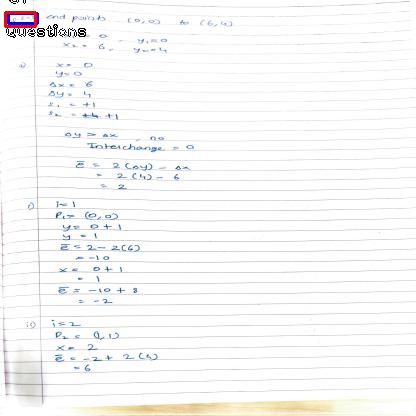 Questions
end points (0,0) to (6,4)
0 y₁=0
x₂ = 6, y₂=4
x = 0
y=0
Δx = 6
Δy = 4
s₁ = +1
s₂ = +1
Δy > Δx no
Interchange = 0
e̅ = 2(Δy) - Δx
= 2(4) - 6
= 2
i) i=1
P₁= (0,0)
y = 0+1
y = 1
e̅ = 2 - 2(6)
= -10
x = 0+1
= 1
e̅ = -10 + 8
= -2
ii) i=2
P₂ = (1,1)
x = 2
e̅ = -2 + 2(4)
= 6